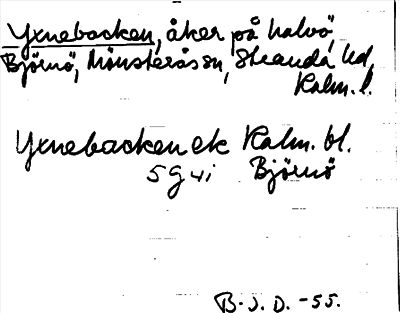 Yxnebacken, åker på halvö,
Björnö, Mönsterås sn, Stranda hd,
Kalm. l.
Yxnebacken ek Kalm. bl.
5G4i Björnö
B.J.D. -55.